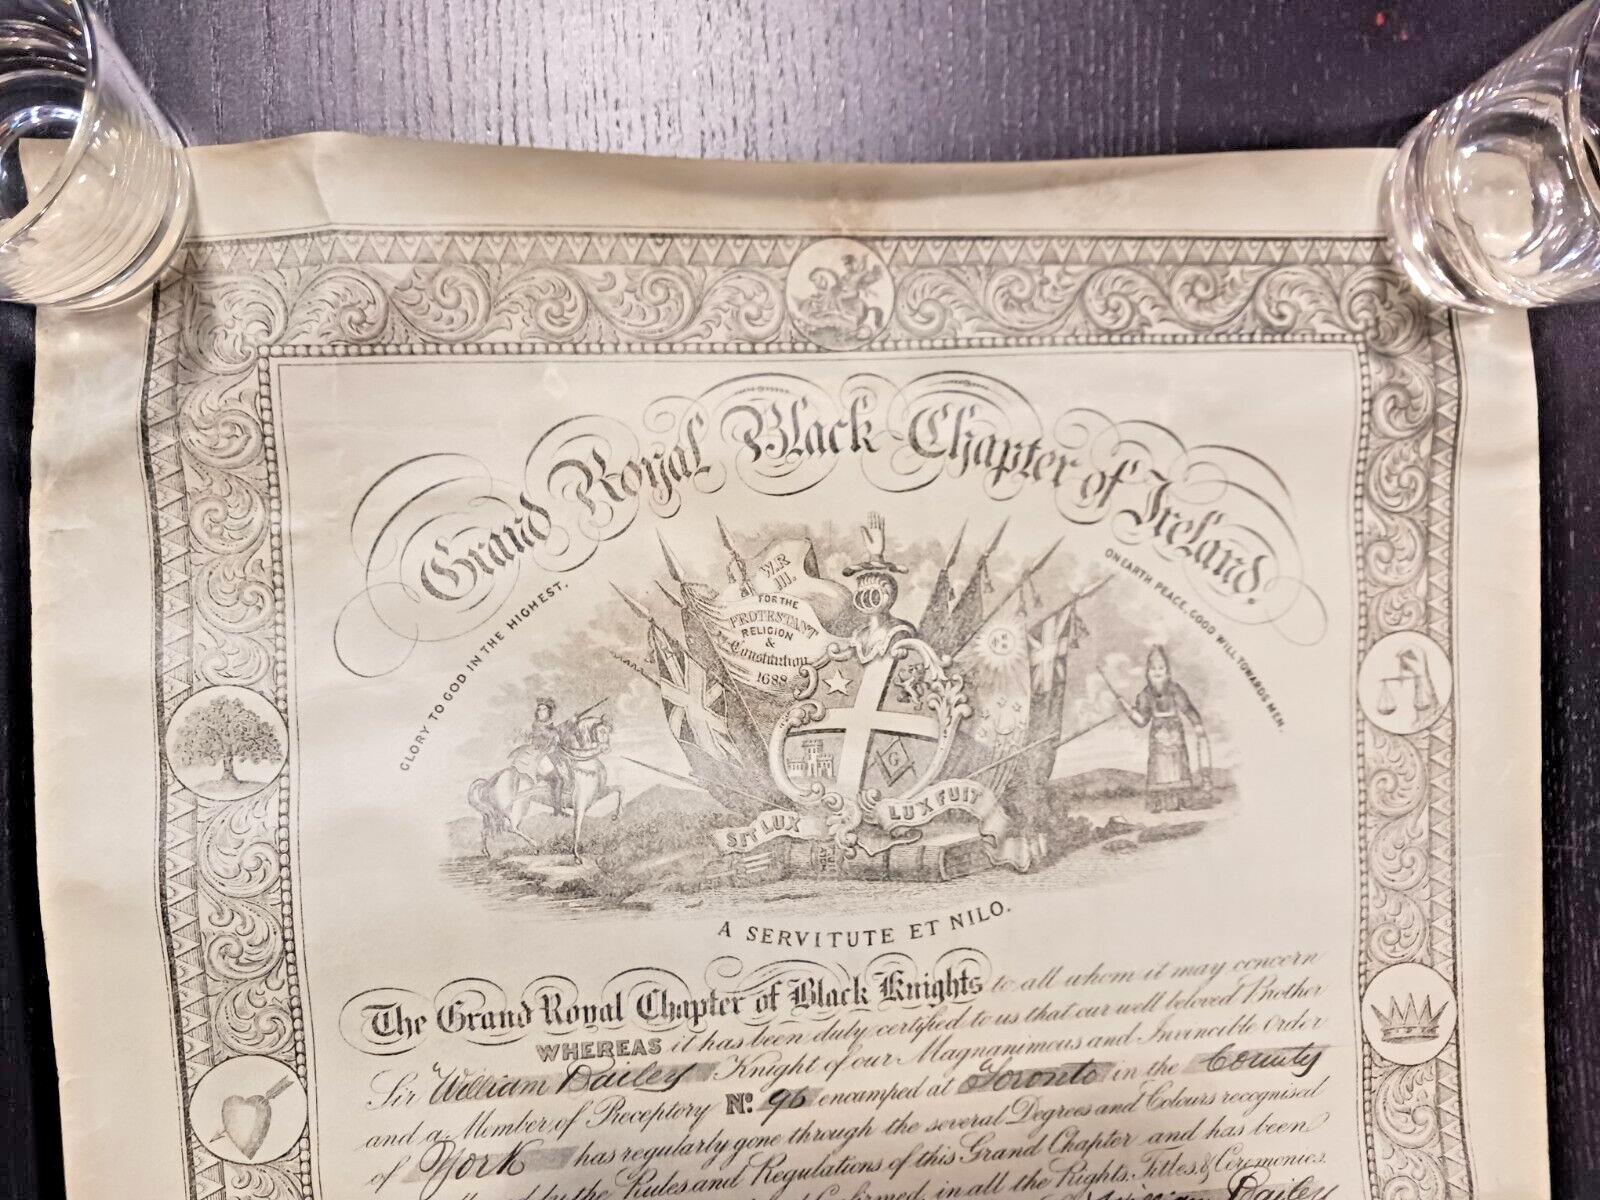 Grand Royal Black Chapter of Ireland,
GLORY TO GOD IN THE HIGHEST.
ON EARTH PEACE, GOOD WILL TOWARDS MEN.
W.R
III.
FOR THE
PROTESTANT
RELIGION
&
Constitution
1688
G
SIT LUX
LUX FUIT
A SERVITUTE ET NILO.
The Grand Royal Chapter of Black Knights to all whom it may concern
WHEREAS it has been duly certified to us that our well beloved Brother
Sir William Bailey Knight of our Magnanimous and Invincible Order
and a Member of Preceptory No. 96 encamped at Toronto in the County
of York has regularly gone through the several Degrees and Colours recognised
by the Rules and Regulations of this Grand Chapter and has been
Confirmed, in all the Rights, Titles, & Ceremonies.
William Bailey